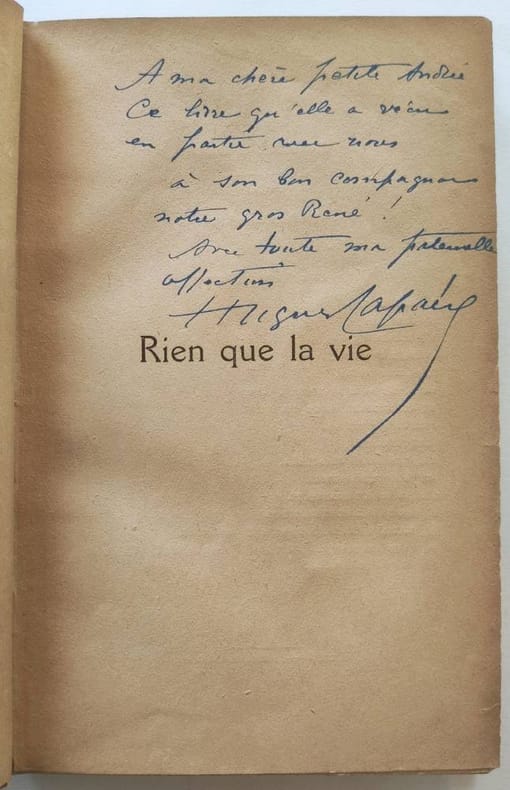 A ma chère petite Andrée
Ce livre qu'elle a vécu
en partie avec nous
à son bon compagnon
notre gros René !
Avec toute ma paternelle
affection
Hugues Lapaire
Rien que la vie